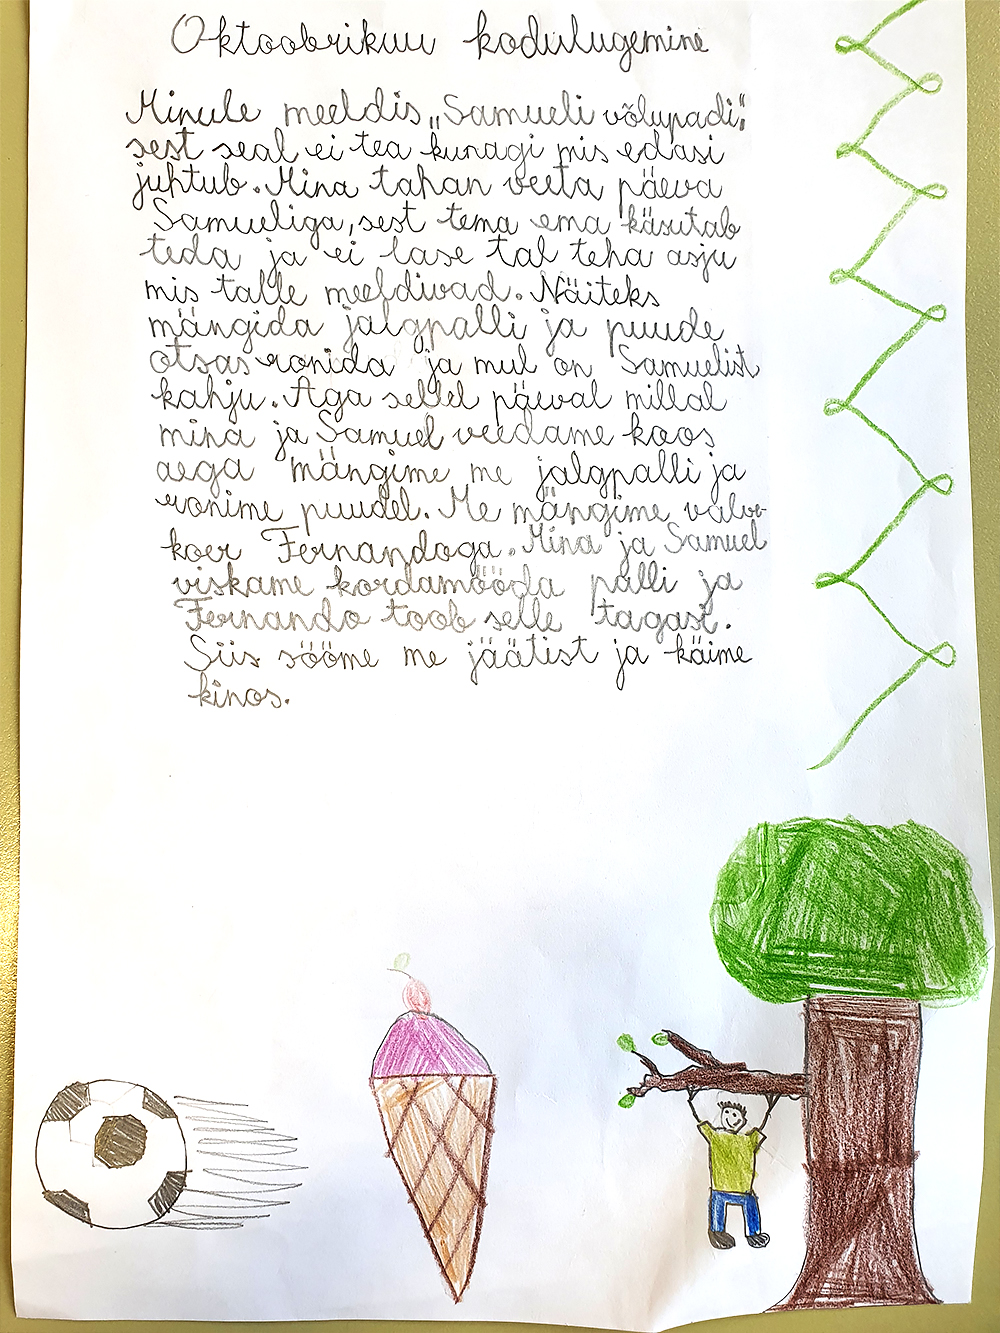 Oktoobrikuu kodulugemine
Minule meeldis „Samueli võlupadi“,
sest seal ei tea kunagi mis edasi
juhtub. Mina tahan veeta päeva
Samueliga, sest tema ema käsutab
teda ja ei lase tal teha asju
mis talle meeldivad. Näiteks
mängida jalgpalli ja puude
otsas ronida ja mul on Samuelist
kahju. Aga sellel päeval millal
mina ja Samuel veedame koos
aega mängime me jalgpalli ja
ronime puudel. Me mängime valve-
koer Fernandoga. Mina ja Samuel
viskame kordamööda palli ja
Fernando toob selle tagasi.
Siis sööme me jäätist ja käime
kinos.